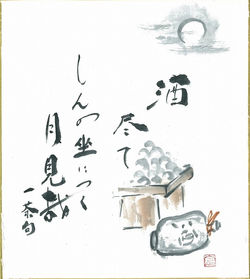 酒
尽て
しんの坐につく
月見哉
一茶句